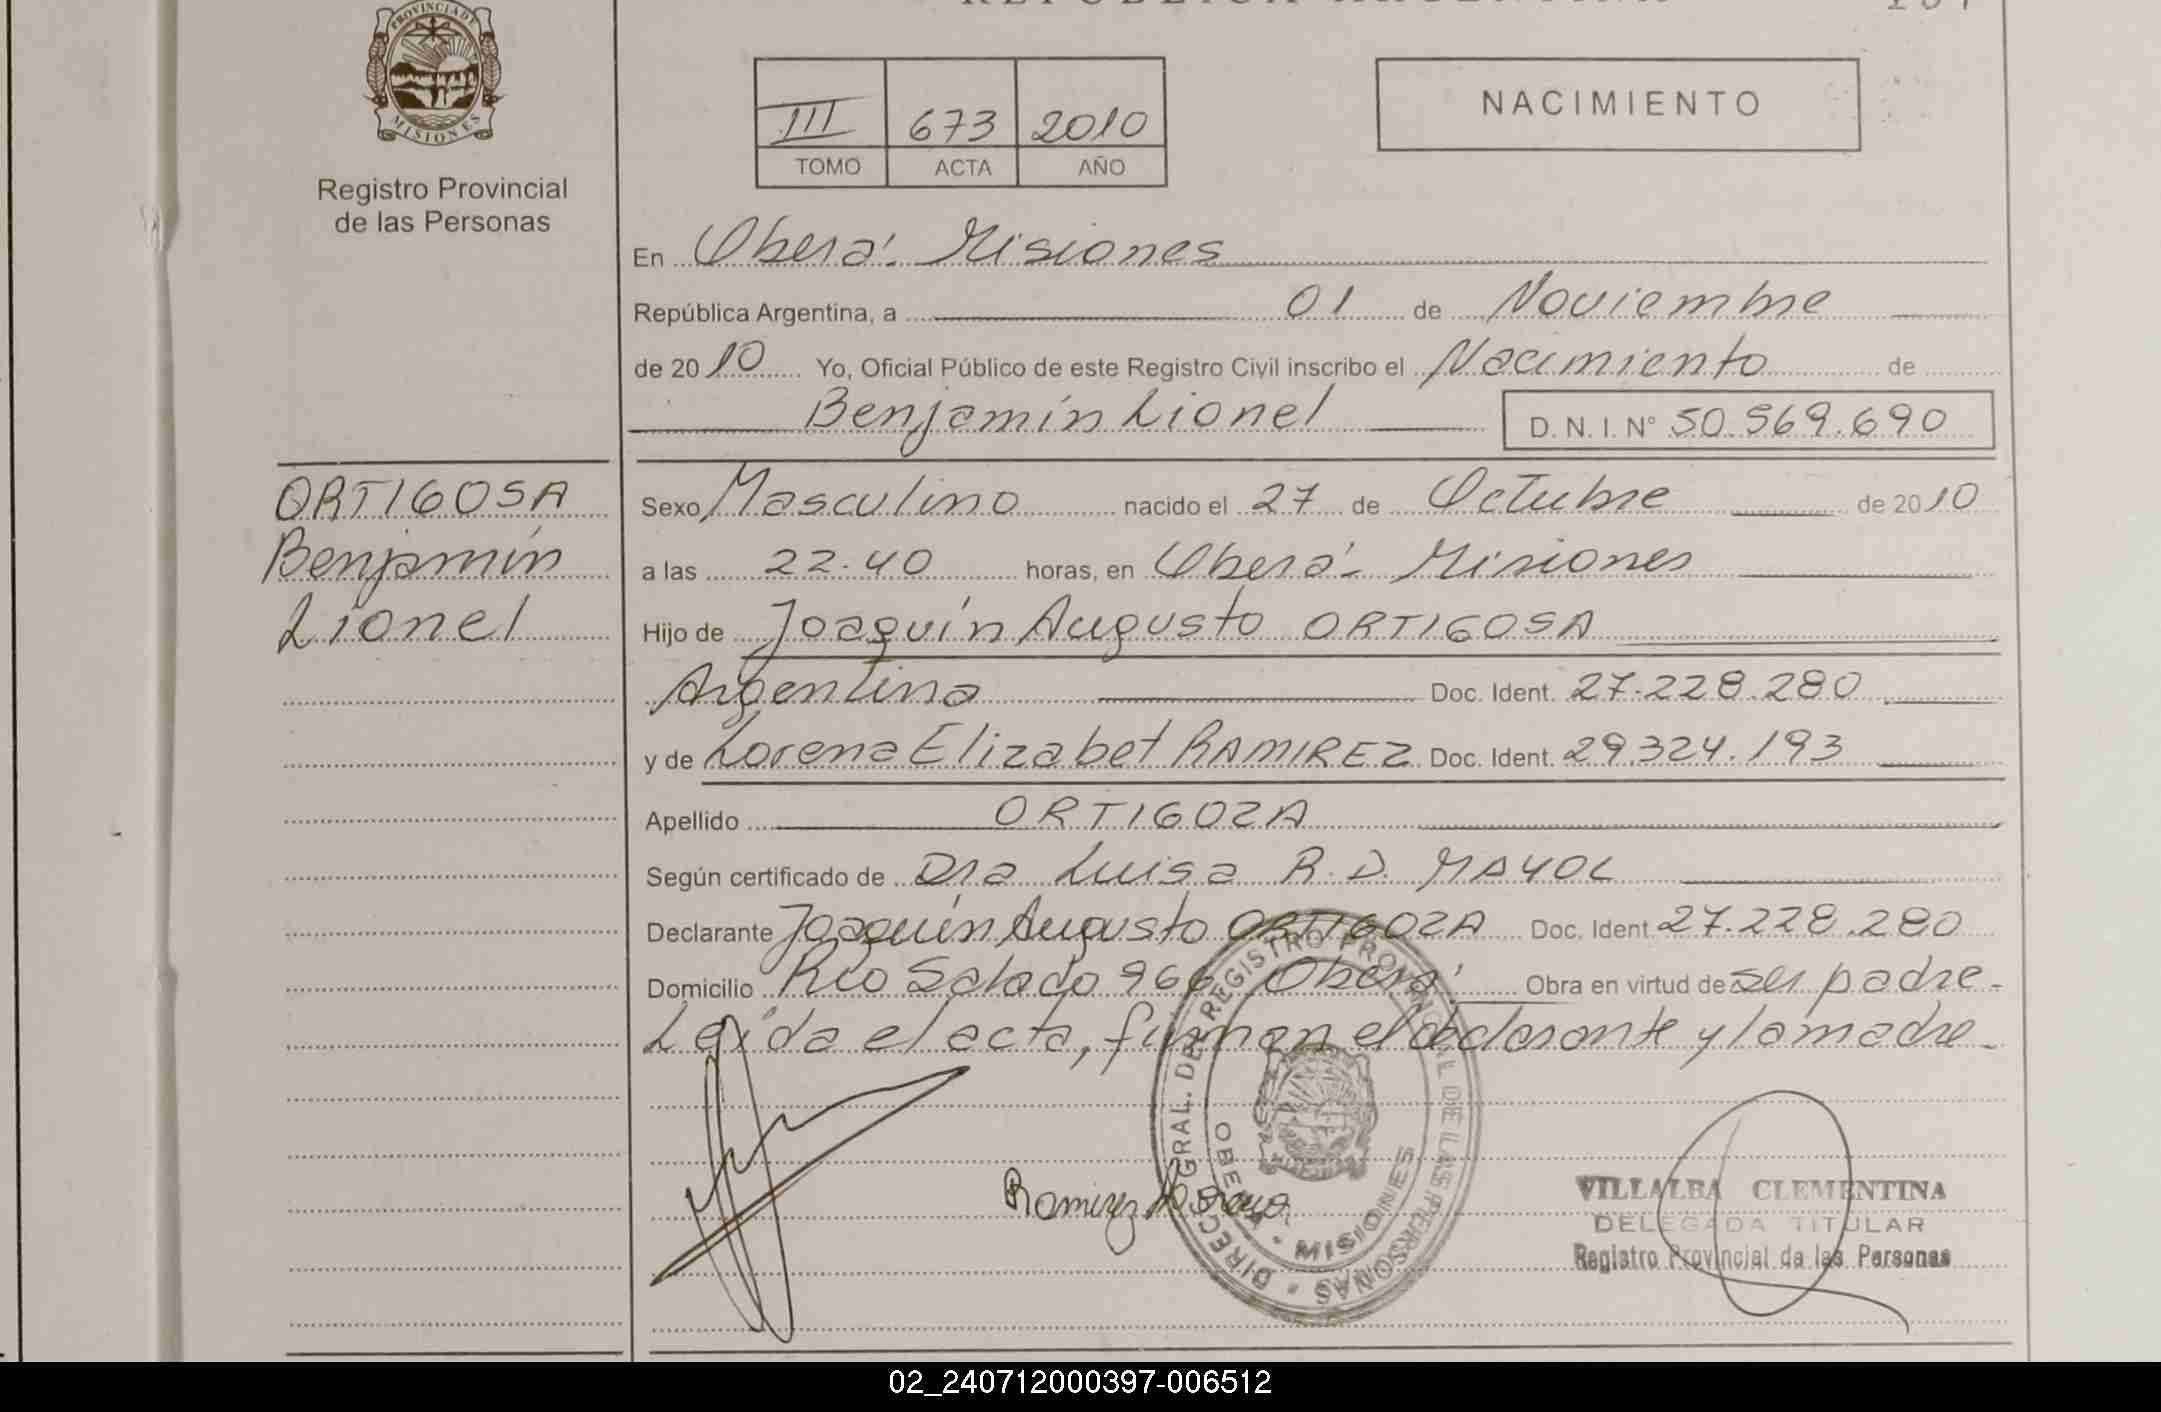 PROVINCIA DE
MISIONES
Registro Provincial
de las Personas
REPUBLICA ARGENTINA
III 673 2010
TOMO ACTA AÑO
NACIMIENTO
En Oberá - Misiones
República Argentina, a 01 de Noviembre
de 2010 Yo, Oficial Público de este Registro Civil inscribo el Nacimiento de
Benjamín Lionel D. N. I. N° 50.569.690
ORTIGOSA
Benjamín
Lionel
Sexo Masculino nacido el 27 de Octubre de 2010
a las 22.40 horas, en Oberá - Misiones
Hijo de Joaquín Augusto ORTIGOSA
Argentina Doc. Ident. 27.228.280
y de Lorena Elizabet RAMIREZ Doc. Ident. 29.324.193
Apellido ORTIGOZA
Según certificado de Dra Luisa R. D. MAYOL
Declarante Joaquín Augusto ORTIGOZA Doc. Ident 27.228.280
Domicilio Río Salado 966 Oberá Obra en virtud de ser padre -
Leída el acta, firman el declarante y la madre -
DIREC. GRAL. DEL REGISTRO PROVINCIAL DE LAS PERSONAS
OBERA - MISIONES
Ramirez
VILLALBA CLEMENTINA
DELEGADA TITULAR
Registro Provincial de las Personas
02_240712000397-006512